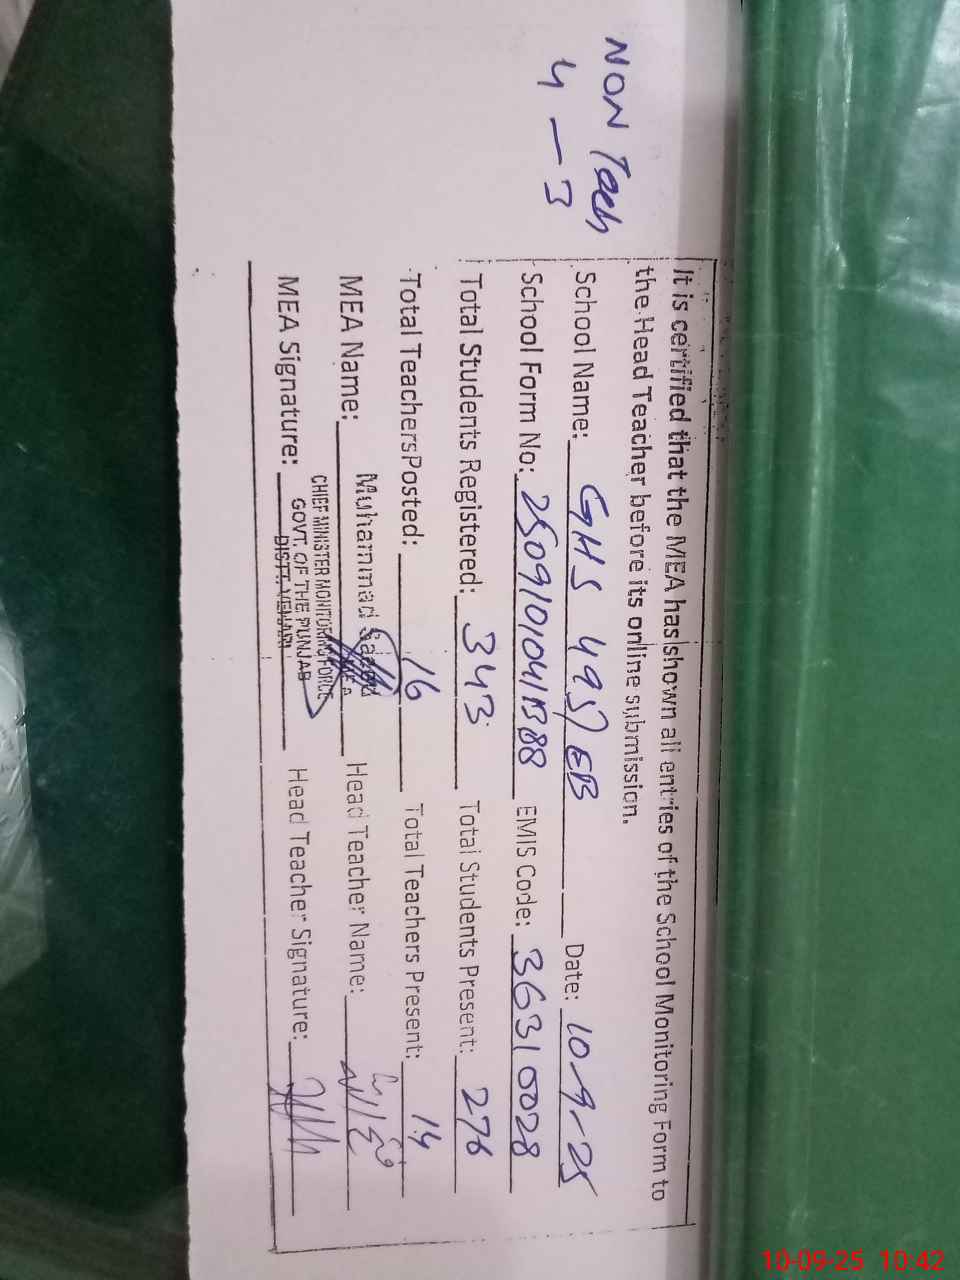 NON Teach
4 — 3
It is certified that the MEA has shown all entries of the School Monitoring Form to
the Head Teacher before its online submission.
School Name: GHS 495/EB Date: 10-9-25
School Form No: EMIS Code: 36310028
Total Students Registered: 343 Total Students Present: 276
Total TeachersPosted: 16 Total Teachers Present: 14
MEA Name: Muhammad Head Teacher Name:
CHIEF MINISTER MONITORING FORCE
MEA Signature: GOVT. OF THE PUNJAB Head Teacher Signature:
DISTT. VEHARI
10-09-25 10:42